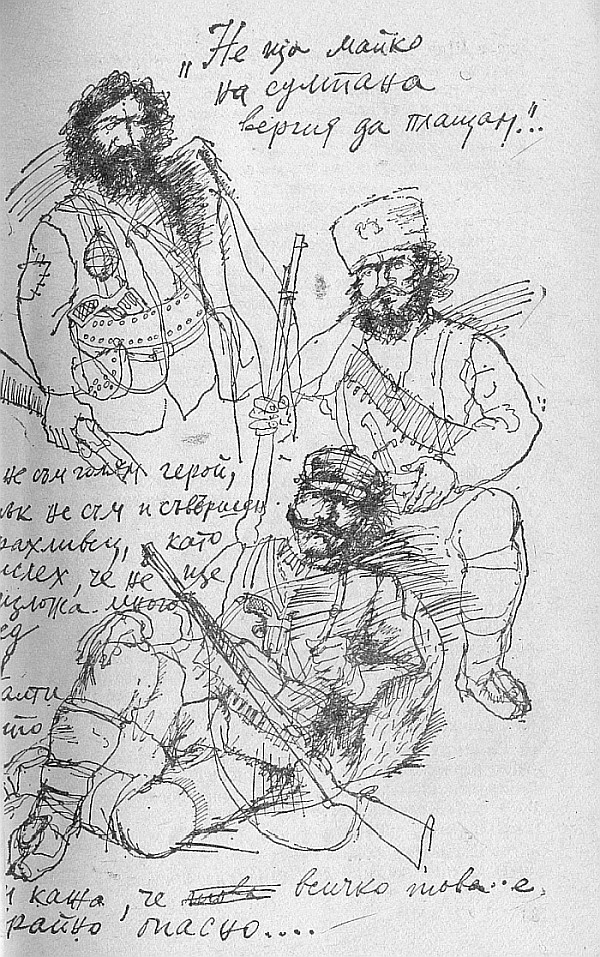 „Не ща майко
на султана
вергия да плащам."..
не съм голям герой,
пък не съм и съвършен
рахливец, като
ислех, че не ще
изложа много
ед
алти
що
и кажа, че това всичко това..е.
райно опасно....